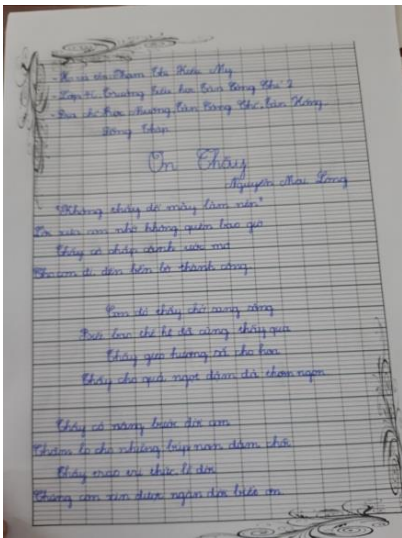 - Họ và tên: Phạm Thị Kiều My
- Lớp 4, Trường Tiểu học Tân Công Chí 2
- Địa chỉ: Tân Công Chí, Tân Hồng,
Đồng Tháp
Ơn Thầy
Nguyễn Mai Long
"Không thầy đố mày làm nên"
Lời xưa con nhớ không quên bao giờ
Thầy cô chắp cánh ước mơ
Cho con đi đến bến bờ thành công.
Con đò thầy chở sang sông
Biết bao thế hệ đã cùng thầy qua
Thầy gieo hương sắc cho hoa
Thầy cho quả ngọt đậm đà thơm ngon
Thầy cô nâng bước đời con
Chăm lo cho những búp non đâm chồi
Thầy trao tri thức
Chúng con xin được ngàn đời biết ơn.